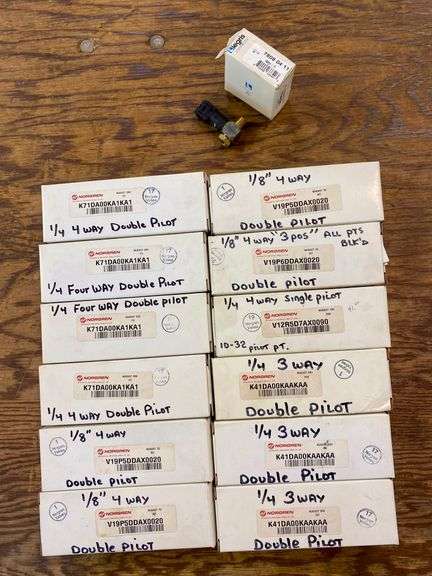 legris
7809 04 11
NORGREN
K71DA00KA1KA1
17
1/4 4 WAY Double Pilot
NORGREN
K71DA00KA1KA1
1/4 Four WAY Double Pilot
1/4 Four WAY Double pilot
NORGREN
K71DA00KA1KA1
NORGREN
K71DA00KA1KA1
1/4 4 WAY Double PILOT
1/8" 4 WAY
NORGREN
V19P5DDAX0020
Double pilot
1/8" 4 WAY
NORGREN
V19P5DDAX0020
Double PILOT
1/8" 4 WAY
NORGREN
V19P5DDAX0020
Double PILOT
1/8" 4 WAY "3 pos" ALL PTS
BLK'D
NORGREN
V19P6DDAX0020
Double pilot
1/4 4 WAY Single pilot
NORGREN
V12R5D7AX0090
10-32 PILOT PT.
1/4 3 WAY
NORGREN
K41DA00KAAKAA
Double PILOT
1/4 3 WAY
NORGREN
K41DA00KAAKAA
17
Double PILOT
1/4 3 WAY
NORGREN
K41DA00KAAKAA
17
Double PILOT